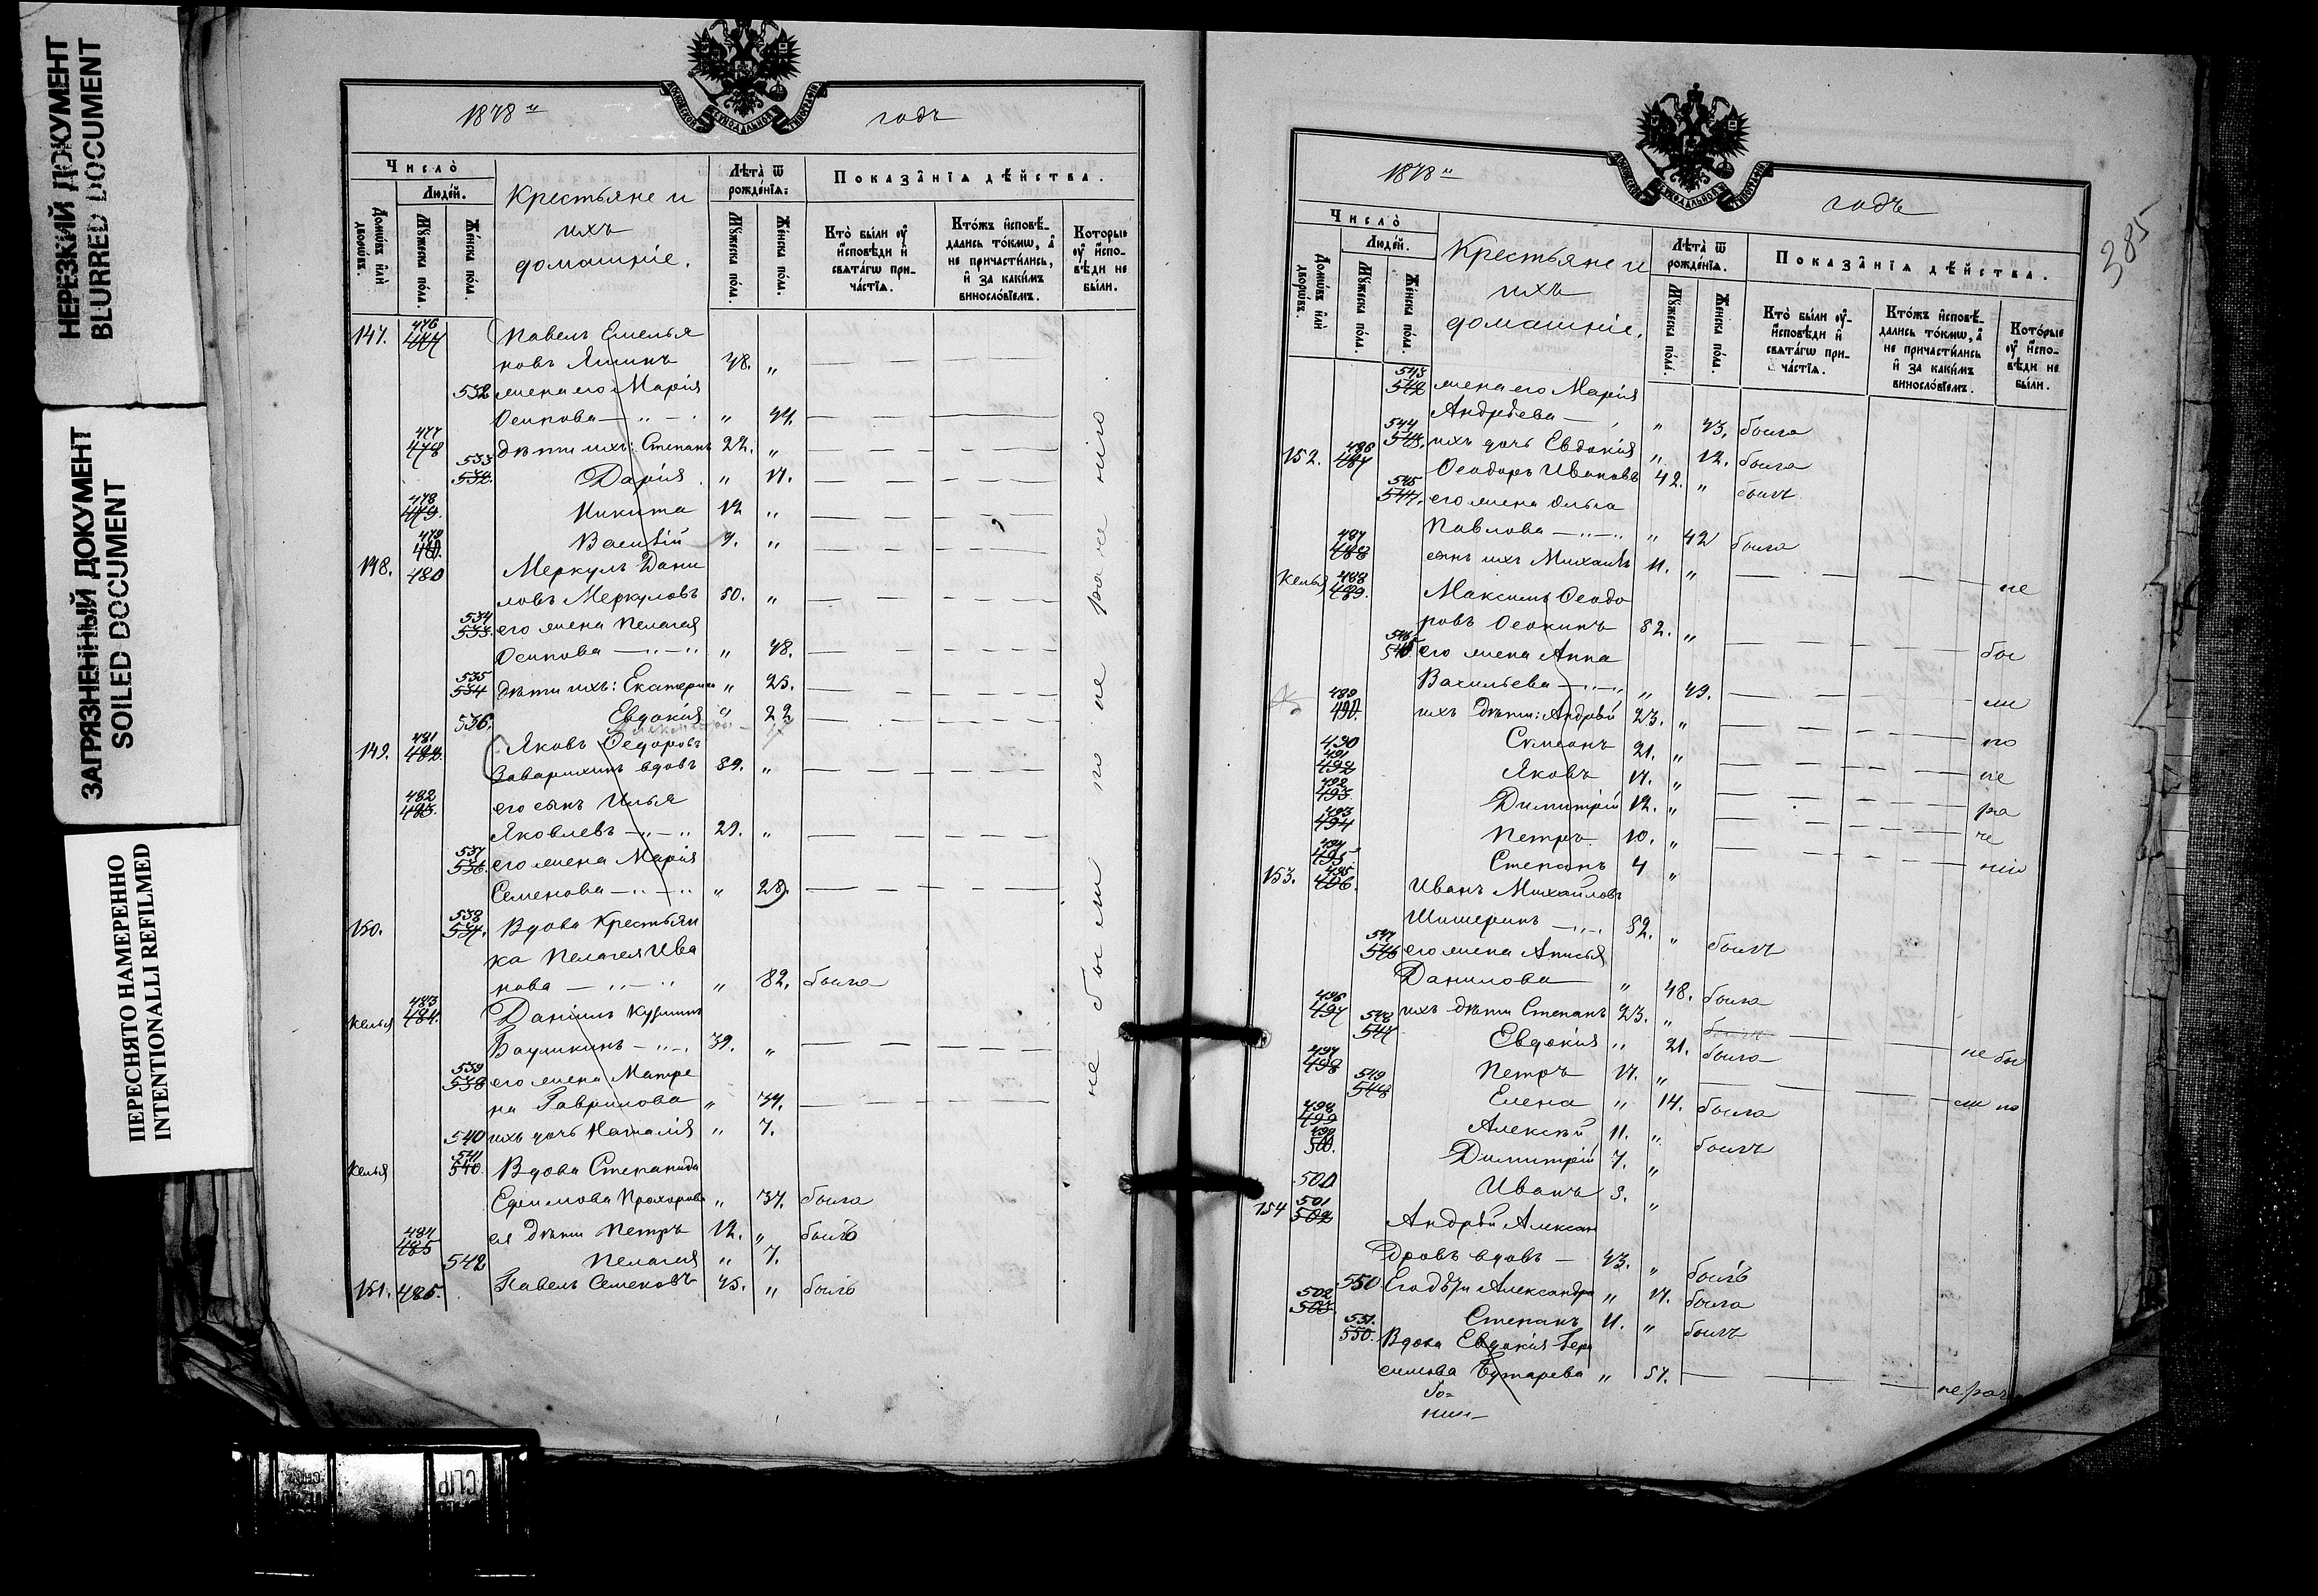 НЕРЕЗКИЙ ДОКУМЕНТ
BLURRED DOCUMENT
ЗАГРЯЗНЕННЫЙ ДОКУМЕНТ
SOILED DOCUMENT
ПЕРЕСНЯТО НАМЕРЕННО
INTENTIONALLI REFILMED
1878 годъ
Число̀
Люде́й.
Домѡ́въ и҆лѝ дворѡ́въ.
Мꙋ́жеска по́ла.
Же́нска по́ла.
Крестьяне и
ихъ
домашніе.
Лѣ́та ѿ рожде́нїѧ:
Мꙋ́жеска по́ла.
Же́нска по́ла.
Показа̑нїѧ дѣ́йства.
Кто̀ бы́ли ᲂу҆ и҆́сповѣди и҆ свѧта́гѡ прича́стїѧ.
Кто́жъ и҆сповѣ́дались то́кмѡ, а҆ не причасти́лись, и҆ за каки́мъ винослові́емъ.
Кото́рые ᲂу҆ и҆́сповѣди не бы́ли.
147. 476 Павелъ Емелья
новъ Яшинъ 48. "
532 жена его Марія
Осипова " 44.
477 478 дѣти ихъ: Степанъ 22. "
533 532. Дарія " 17.
478 479. Никита 12 "
479 480. Василій 9. "
148. 480 Меркулъ Дани
ловъ Меркуловъ 50. "
534 533. его жена Пелагея
Осипова " 48.
535 534 дѣти ихъ: Екатерина " 25.
536. Евдокія " 22
149. 481 482. Яковъ Ѳедоровъ
Заварихинъ вдовъ 89. "
482 483. его сынъ Илья
Яковлевъ 29. "
537 536. его жена Марія
Семенова " 28.
150. 538 537. Вдова Крестьян
ка Пелагея Ива
нова " 82. была
Келья 483 484. Даніилъ Кузминъ
39. "
539 538 его жена Матре
на Гаврилова " 34.
540 ихъ дочь Наталія " 7.
Келья 541 540. Вдова Степанида
Ефимова Прохорова " 37. была
484 485 ея дѣти Петръ 12. " былъ
542 Пелагея " 7.
151. 485. Павелъ Семеновъ 45. " былъ
не были по не раченію
385
1878 годъ
Число̀
Люде́й.
Домѡ́въ и҆лѝ дворѡ́въ.
Мꙋ́жеска по́ла.
Же́нска по́ла.
Крестьяне и
ихъ
домашніе.
Лѣ́та ѿ рожде́нїѧ.
Мꙋ́жеска по́ла.
Же́нска по́ла.
Показа̑нїѧ дѣ́йства.
Кто̀ бы́ли ᲂу҆ и҆́сповѣди и҆ свѧта́гѡ прича́стїѧ.
Кто́жъ и҆сповѣ́дались то́кмѡ, а҆ не причасти́лись и҆ за каки́мъ винослові́емъ.
Кото́рые ᲂу҆ и҆́сповѣди не бы́ли.
543 542 жена его Марія
Андреева " 43. была
544 543. ихъ дочь Евдокія " 12. была
152. 486 487 Ѳеодоръ Ивановъ 42. " былъ
545 544. его жена Ольга
Павлова " 42 была
487 488 сынъ ихъ Михаилъ 11. " не
Келья 488 489. Максимъ Ѳеодо
ровъ Ѳеокинъ 52. " бы
546 545 его жена Анна
Васильева " 49. ли
489 490. ихъ дѣти: Андрей 23. " по
490 Симеонъ 21. " не
491 492 Яковъ 17. " ра
492 493. Димитрій 12. " че
493 494 Петръ 10. " нію
494 495. Степанъ 4 "
153. 495 496. Иванъ Михайловъ
Шишеринъ 52. " былъ
547 546 его жена Анисья
Данилова " 48. была
496 497 ихъ дѣти Степанъ 23. " не бы
548 547 Евдокія " 21. была
497 498 Петръ 17. " ли по
549 548 Елена " 14. была
498 499 Алексѣй 11. " былъ
499 500. Димитрій 7. "
500 Иванъ 3. "
154 501 502 Андрѣй Алексан
дровъ вдовъ 43. " былъ
550 Его дѣти Александра " 17. была
502 503. Степанъ 11. " былъ
551. 550. Вдова Евдокія Гера
симова Бутарева " 57. не рач